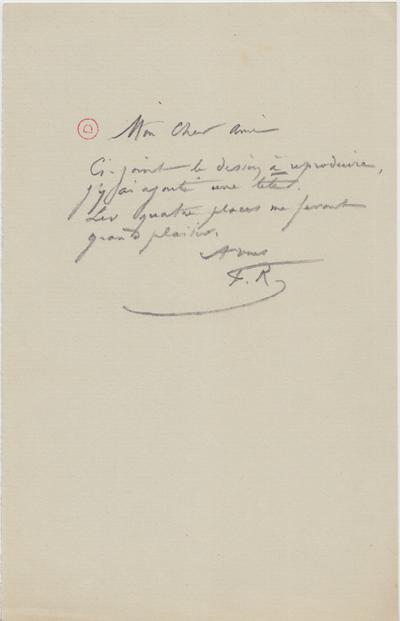 Mon Cher Ami
Ci-joint le dessin à reproduire,
j'y ai ajouté une tête.
Les quatre places me feront
grand plaisir.
A vous
F. R